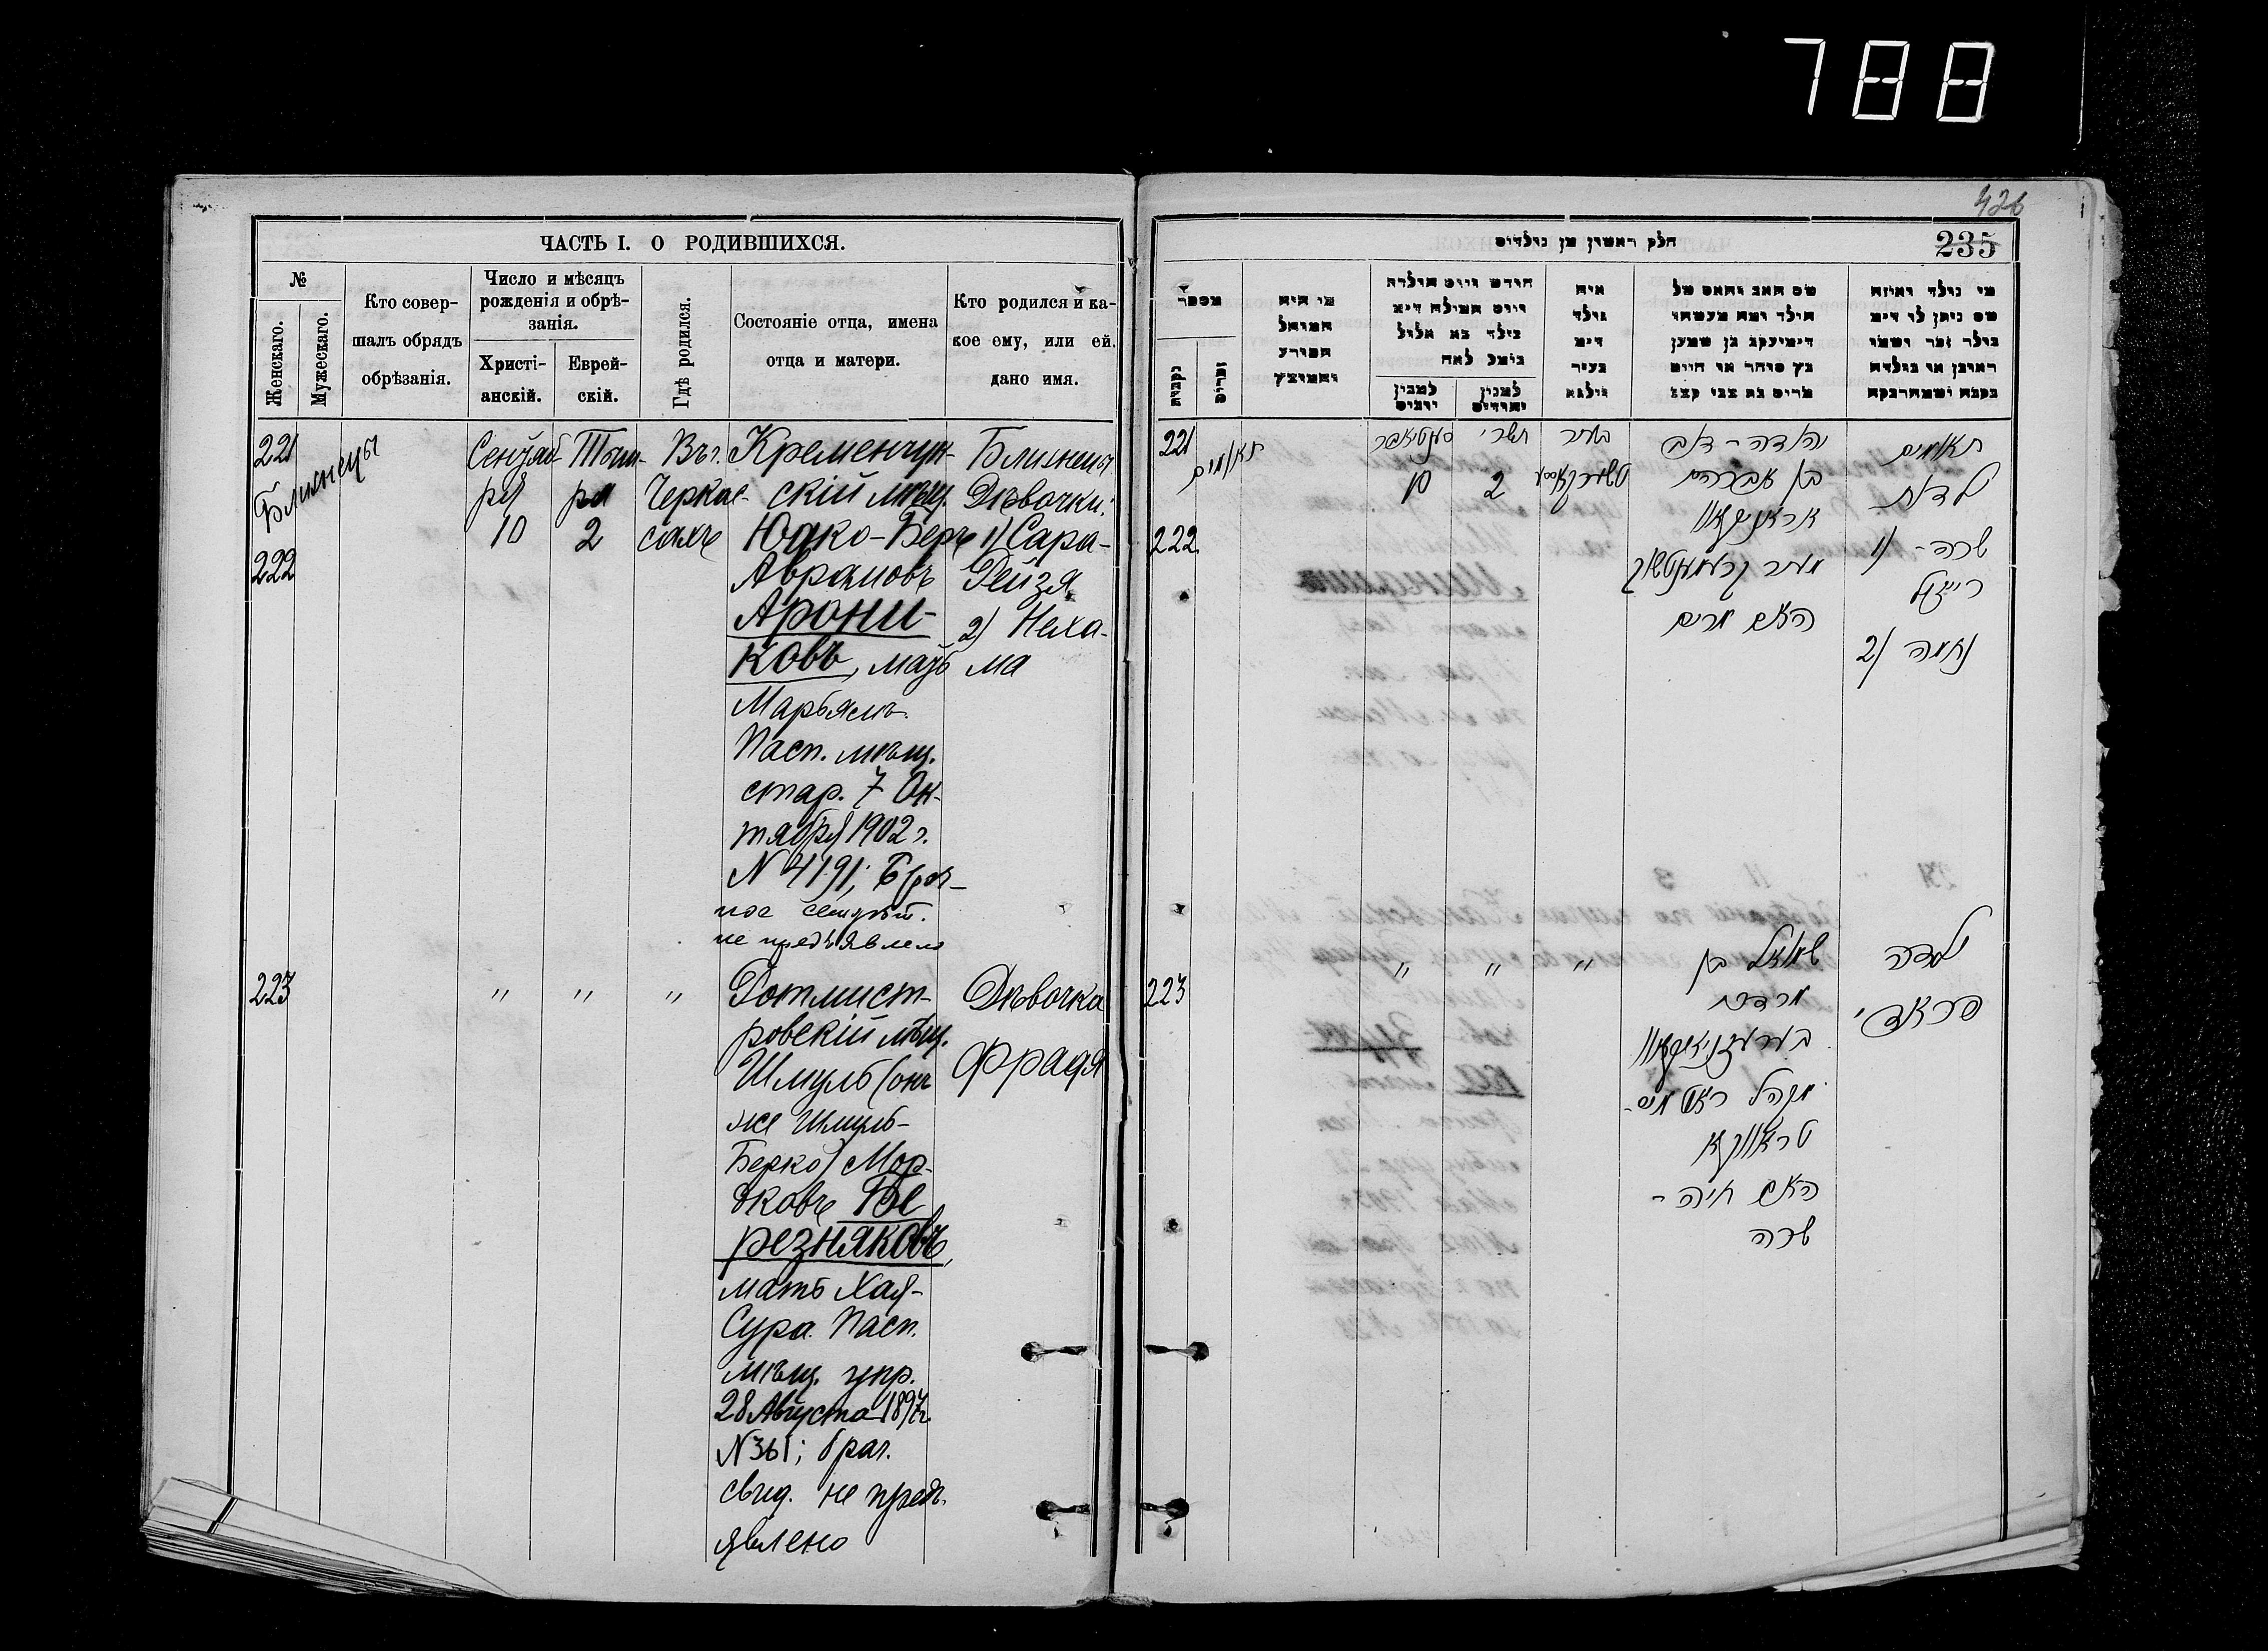 788
426
ЧАСТЬ I. О РОДИВШИХСЯ.
№
Женскаго.
Мужескаго.
Кто совер-
шалъ обрядъ
обрѣзанія.
Число и мѣсяцъ
рожденія и обрѣ-
занія.
Христі-
анскій.
Еврей-
скій.
Гдѣ родился.
Состояніе отца, имена
отца и матери.
Кто родился и ка-
кое ему, или ей.
дано имя.
221
Близнецы
222
Сентяб-
ря
10
Тиш-
ри
2
Въ г.
Черкас-
сахъ
Кременчуг-
скій мѣщ.
Юдко-Беръ
Аврамовъ
Арони-
ковъ, мать
Марьямъ.
Пасп. мѣщ.
стар. 7 Ок-
тября 1902 г.
N 4191; Брач-
ное свидѣт.
не предъявлено
Близнецы
Дѣвочки:
1) Сара-
Рейзя
2) Неха-
ма
223
" " "
Ротмист-
ровскій мѣщ.
Шмуль (онъ
же Шмуль-
Берко) Мор-
дковъ Бе
резняковъ,
мать Хая-
Сура. Пасп.
мѣщ. упр.
28 Августа 1897 г.
N 361; брач.
свид. не предъ-
явлено
Дѣвочка
Фрадя
חלק ראשון מן נולדים
235
מספר
נקבות
זכרים
מי היה
המוהל
והמוצץ
חודש ויום הולדת
ויום המילה
למנין
יהודים
איה
נולד
שם האב
מי נולד ואיזה
שם ניתן לו
221
תאומים
222
סעפטיאבר
10
תשרי
2
בעיר
טשערקאסי
יהודה-דוב
בן אברהם
אראניקאוו
מעיר קרעמענטשוג
האם מרים
תאומים
ילדות
1) שרה-
רייזל
2) נחמה
223
" " "
שמואל בן
מרדכי
בערעזניאקאוו
מקהל ראטמיס-
טראווקא
האם חיה-
שרה
ילדה
פראדי